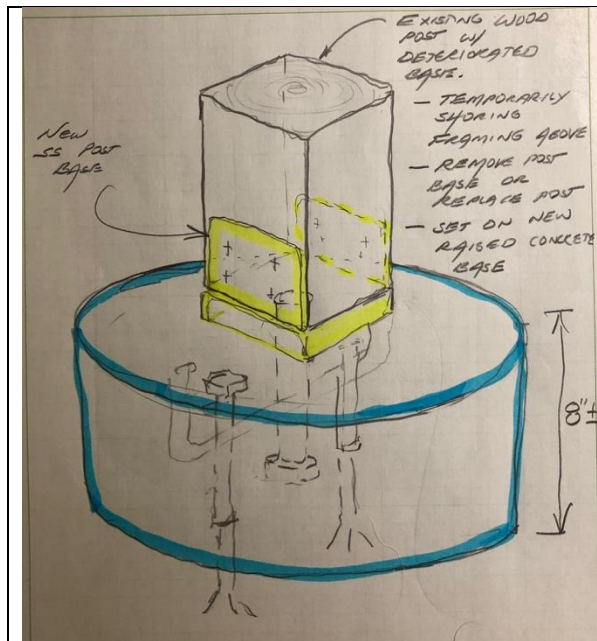 EXISTING WOOD
POST W/
DETERIORATED
BASE.
- TEMPORARILY
SHORING
FRAMING ABOVE
- REMOVE POST
BASE OR
REPLACE POST
- SET ON NEW
RAISED CONCRETE
BASE
NEW
SS POST
BASE
8"±